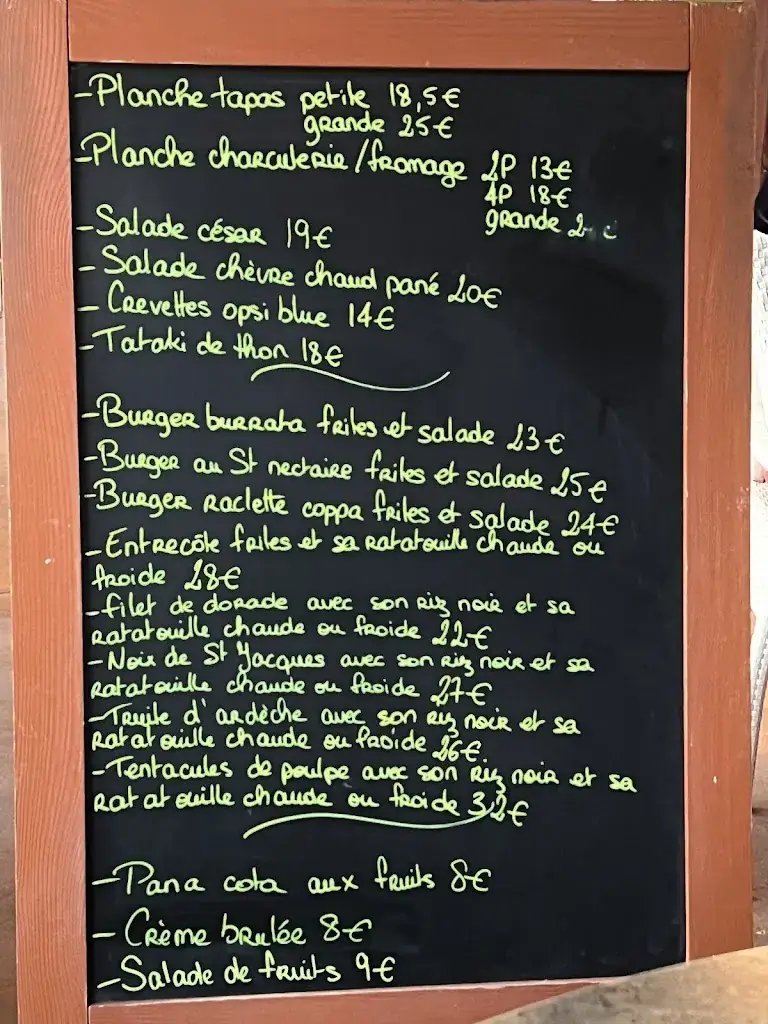 -Planche tapas petite 18,5€
grande 25€
-Planche charcuterie/fromage 2P 13€
4P 18€
grande
-Salade césar 19€
-Salade chèvre chaud pané 20€
-Crevettes opsi blue 14€
-Tataki de thon 18€
-Burger burrata frites et salade 23€
-Burger au St nectaire frites et salade 25€
-Burger raclette coppa frites et salade 24€
-Entrecôte frites et sa ratatouille chaude ou
froide 28€
-filet de dorade avec son riz noir et sa
ratatouille chaude ou froide 22€
-Noix de St Jacques avec son riz noir et sa
ratatouille chaude ou froide 27€
-Truite d'ardèche avec son riz noir et sa
ratatouille chaude ou froide 26€
-Tentacules de poulpe avec son riz noir et sa
ratatouille chaude ou froide 32€
-Pana cota aux fruits 8€
-Crème brulée 8€
-Salade de fruits 9€